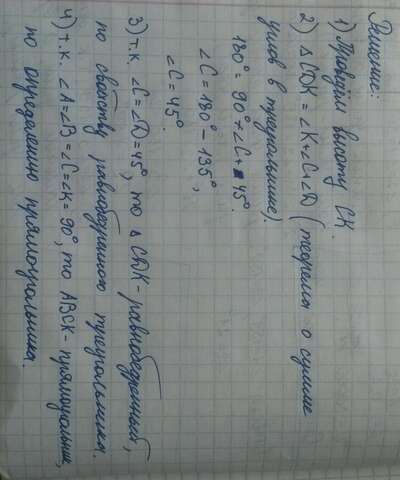 Решение:
1) Проведём высоту СК.
2) ΔCDK = ∠K+∠C+∠D (теорема о сумме
углов в треугольнике).
180° = 90°+∠C+45°.
∠C = 180° - 135°,
∠C = 45°.
3) т.к. ∠C = ∠D = 45°, то Δ CDK - равнобедренный,
по свойству равнобедренного треугольника.
4) т.к. ∠A=∠B=∠C=∠K=90°, то ABCK - прямоугольник,
по определению прямоугольника.